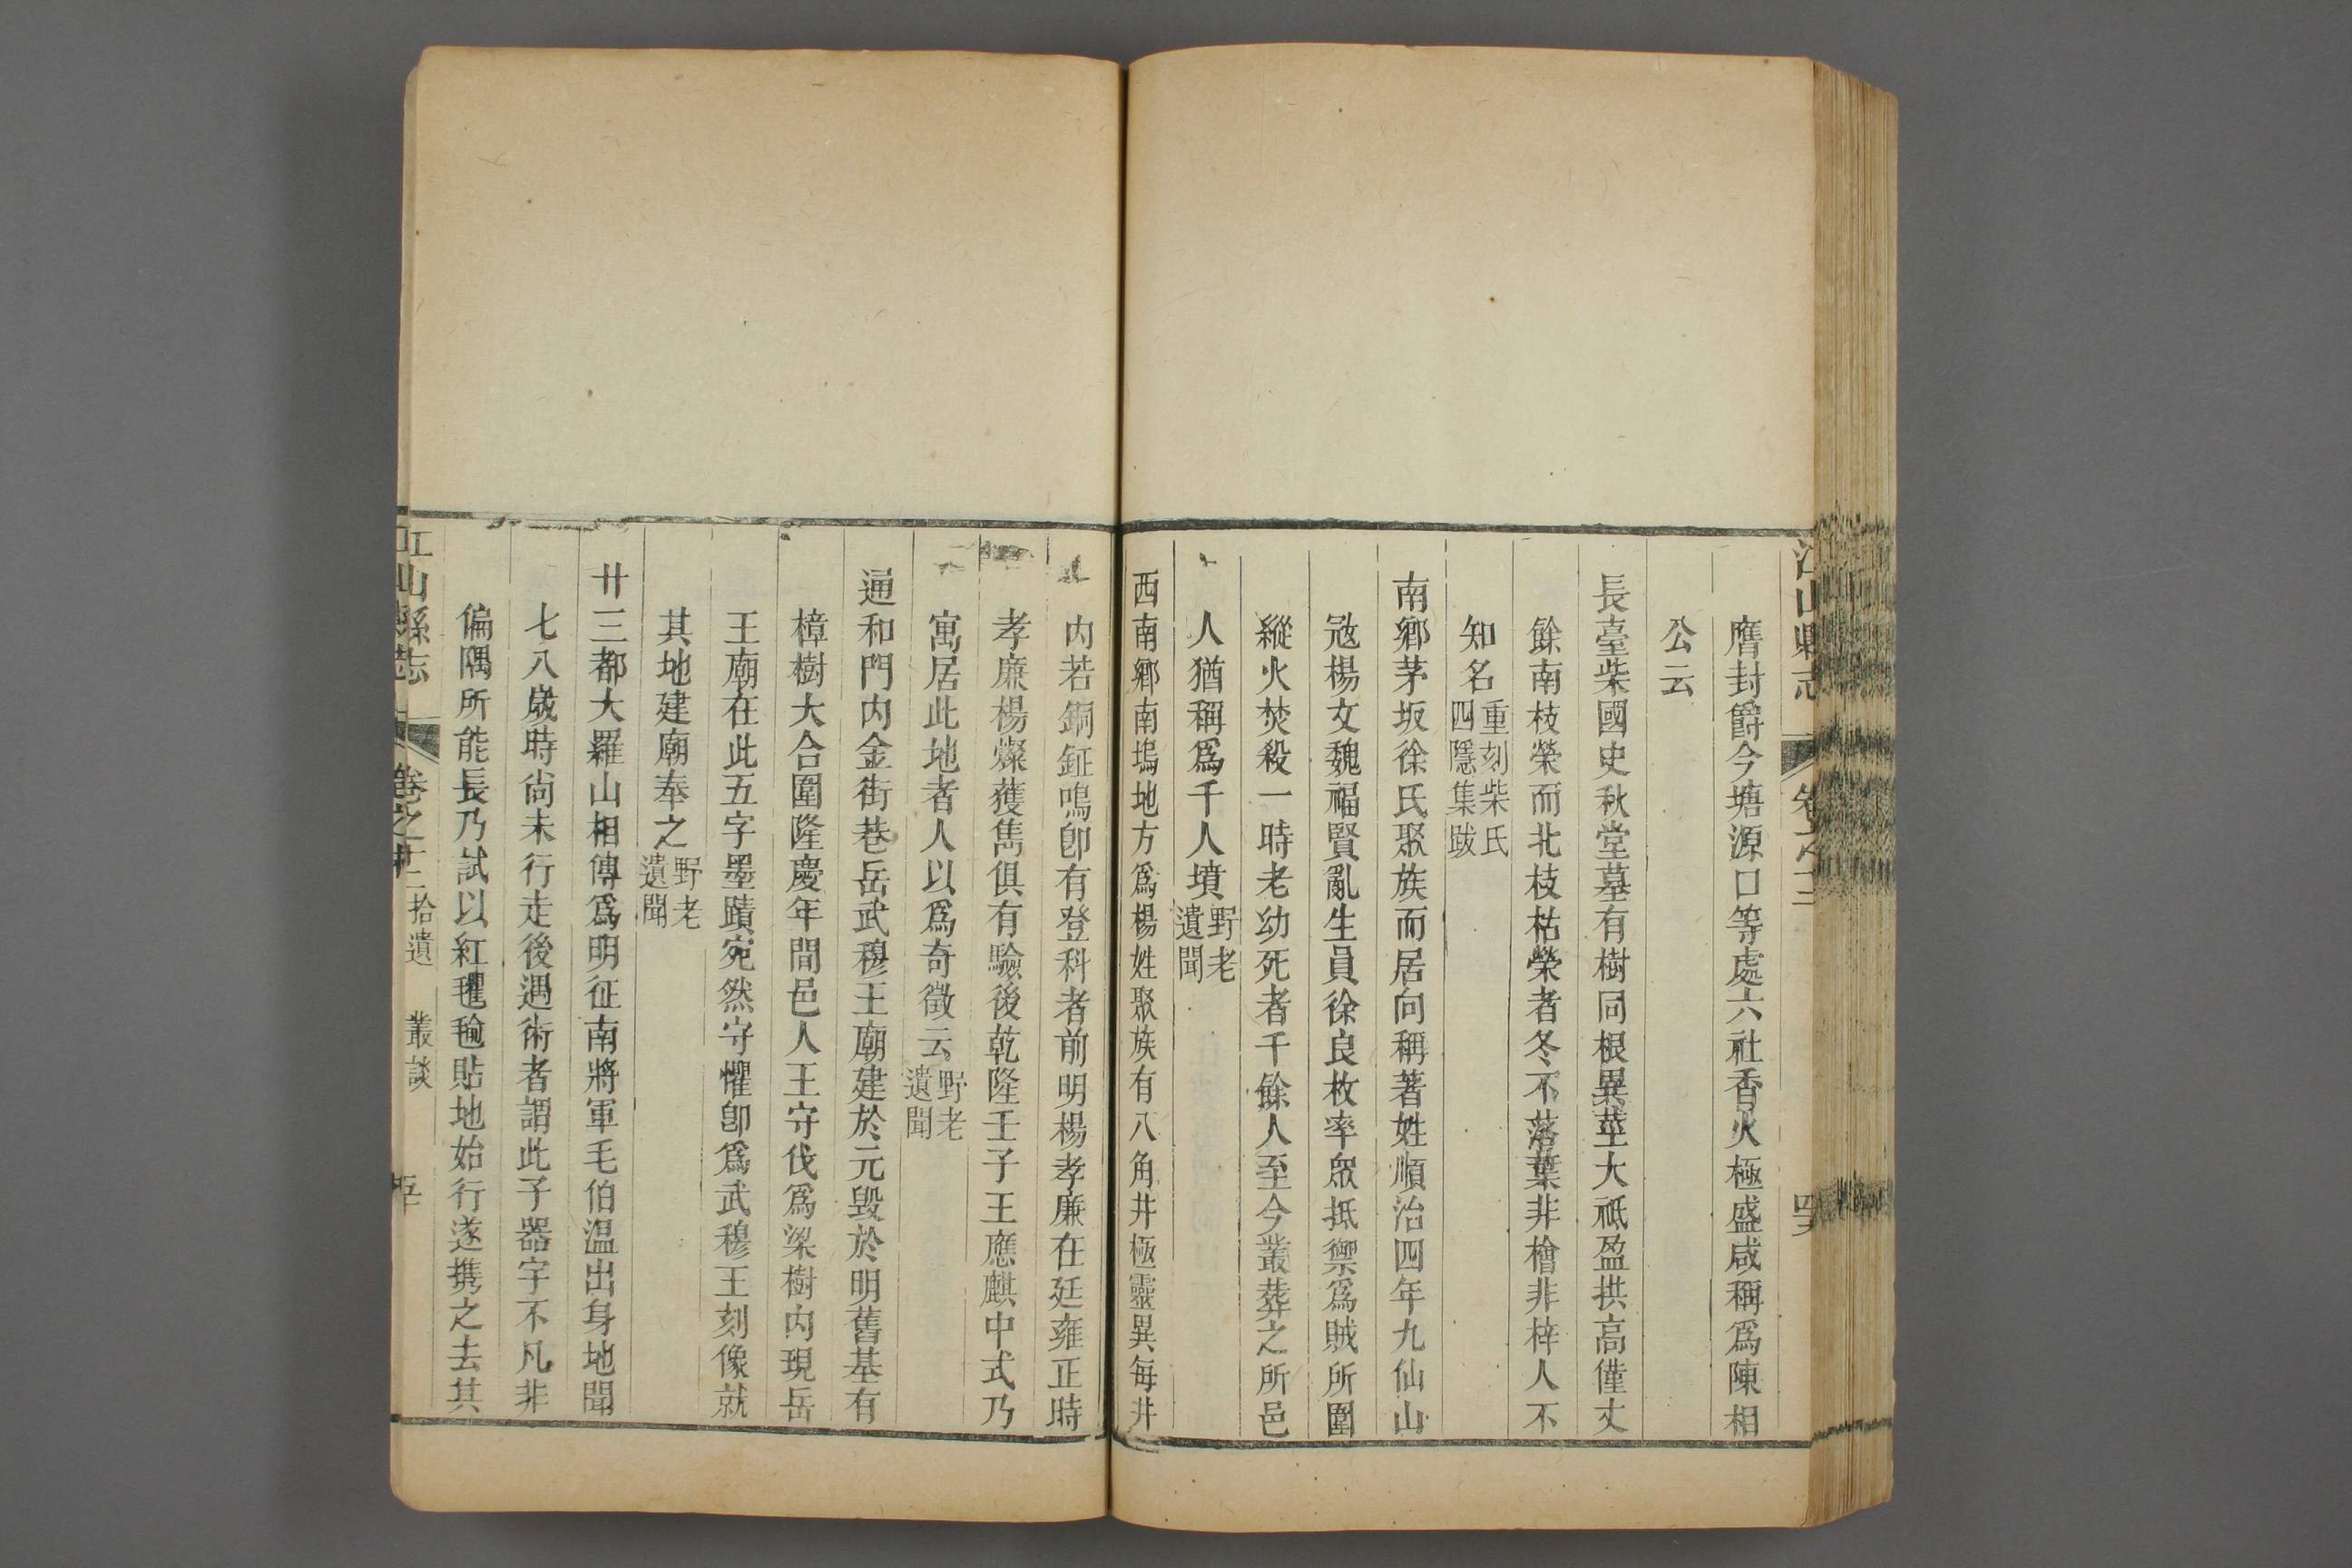 江山縣志
膺封爵今塘源口等處六社香火極盛咸稱爲陳相
公云
長臺柴國史秋堂墓有樹同根異莖大祗盈拱高僅丈
餘南枝榮而北枝枯榮者冬不落葉非檜非梓人不
知名重刻柴氏四隱集跋
南鄉茅坂徐氏聚族而居向稱著姓順治四年九仙山
寇楊文魏福賢亂生員徐良枚率衆抵禦爲賊所圍
縱火焚殺一時老幼死者千餘人至今叢葬之所邑
人猶稱爲千人墳野老遺聞
西南鄉南塢地方爲楊姓聚族有八角井極靈異每井
内若銅鉦鳴卽有登科者前明楊孝廉在廷雍正時
孝廉楊燦獲雋俱有驗後乾隆壬子王應麒中式乃
寓居此地者人以爲奇徵云野老遺聞
通和門内金街巷岳武穆王廟建於元毀於明舊基有
樟樹大合圍隆慶年間邑人王守伐爲梁樹内現岳
王廟在此五字墨蹟宛然守懼卽爲武穆王刻像就
其地建廟奉之野老遺聞
廿三都大羅山相傳爲明征南將軍毛伯溫出身地聞
七八歲時尙未行走後遇術者謂此子器宇不凡非
偏隅所能長乃試以紅氍毹貼地始行遂携之去其
江山縣志 卷之十二 拾遺 叢談